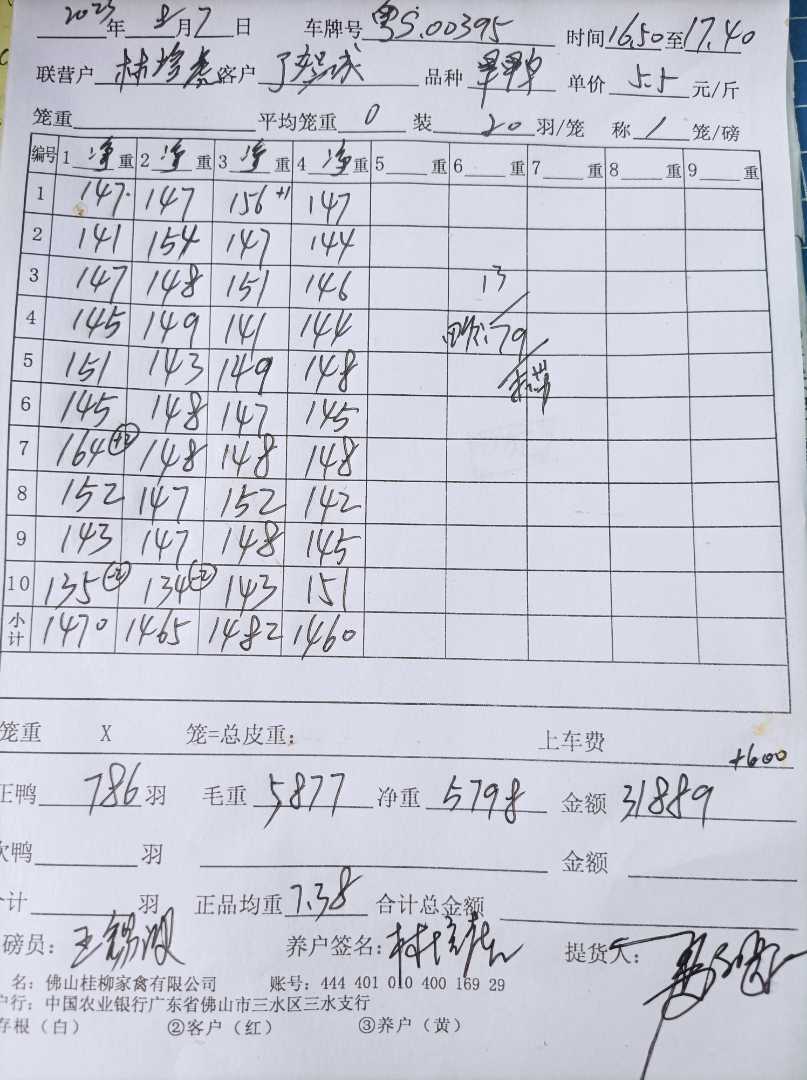 2023年 8月7日 车牌号 粤S.00395 时间16.50至17.40
联营户 林 客户 品种 单价 5.5 元/斤
笼重 平均笼重 0 装 20 羽/笼 称 1 笼/磅
编号 1 净 重 2 净 重 3 净 重 4 净 重 5 重 6 重 7 重 8 重 9 重
1 147. 147 156 +1 147
2 141 154 147 144
3 147 148 151 146 13
4 145 149 141 144 79
5 151 143 149 148
6 145 148 147 145
7 164 +2 148 148 148
8 152 147 152 142
9 143 147 148 145
10 135 -2 134 -2 143 151
小计 1470 1465 1482 1460
笼重 X 笼=总皮重: 上车费
+600
正鸭 786 羽 毛重 5877 净重 5798 金额 31889
次鸭 羽 金额
合计 羽 正品均重 7.38 合计总金额
磅员: 王锡 养户签名: 林 提货人:
名: 佛山桂柳家禽有限公司 账号: 444 401 010 400 169 29
户行: 中国农业银行广东省佛山市三水区三水支行
存根(白) ②客户(红) ③养户(黄)